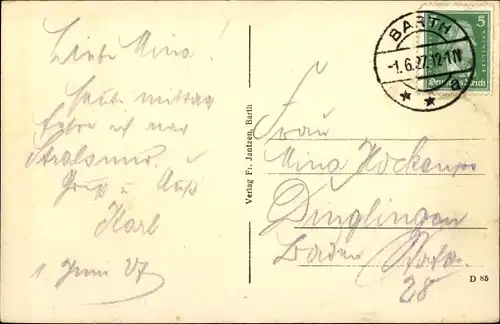 Liebe Mina!
Heute mittag
fahre ich nach
Stralsund.
Gruß u. Kuß
Karl
1 Juni 27
Verlag Fr. Jantzen, Barth
BARTH
-1.6.27.12-1N
a
5
Deutsches Reich
Frau
Mina
Dinglingen
Baden
28
D 85